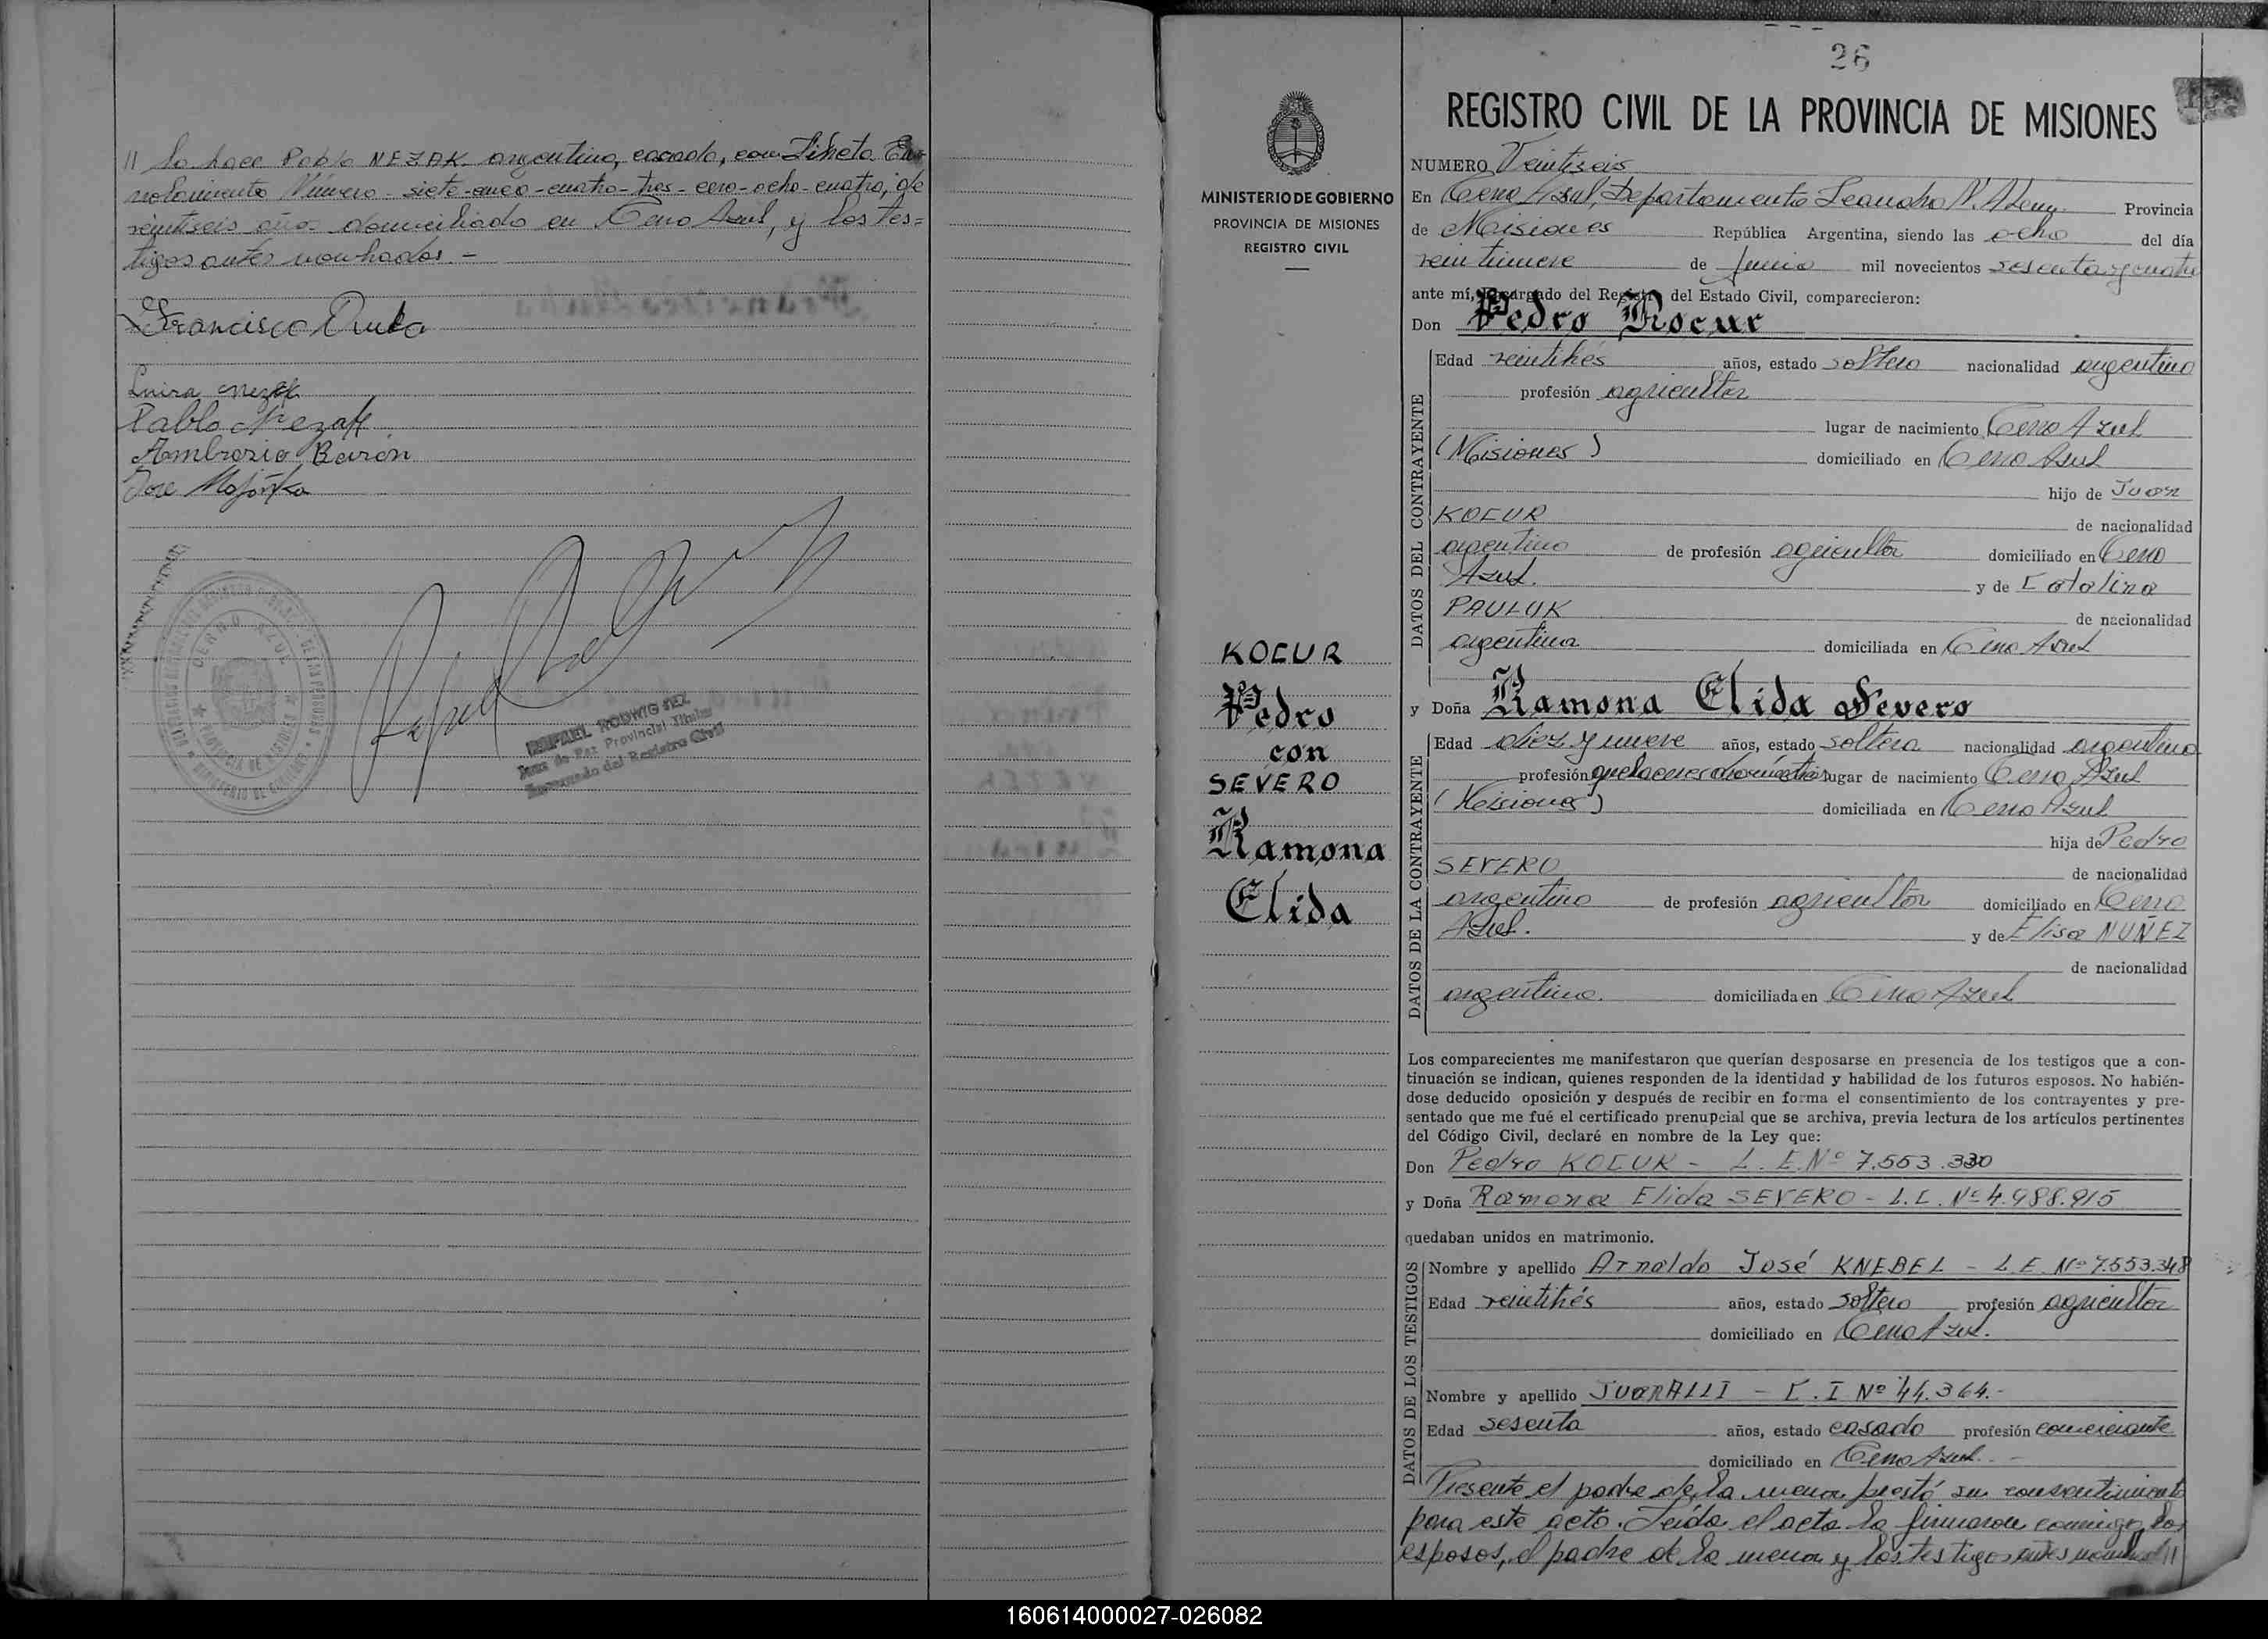 // lo hace Pablo NEZAK argentino, casado, con Libreta En=
rolamiento Número - siete-cinco-cuatro-tres-cero-ocho-cuatro, de
veintiseis años domiciliado en Cerro Azul, y los tes=
tigos antes nombrados.-
Francisco
Luisa Nezak
Pablo Nezak
Ambrosio Barón
Jose
CERRO AZUL
PROVINCIA DE MISIONES
MINISTERIO DE GOBIERNO
RAFAEL RODWIG
Juez de Paz Provincial Titular
Encargado del Registro Civil
26
MINISTERIO DE GOBIERNO
PROVINCIA DE MISIONES
REGISTRO CIVIL
KOCUR
Pedro
con
SEVERO
Ramona
Elida
REGISTRO CIVIL DE LA PROVINCIA DE MISIONES
NUMERO Veintiseis
En Cerro Azul, Departamento Leandro N. Alem. Provincia
de Misiones República Argentina, siendo las ocho del día
veintinueve de Junio mil novecientos sesenta y cuatro
ante mí, Encargado del Registro del Estado Civil, comparecieron:
Don Pedro Kocur
DATOS DEL CONTRAYENTE
Edad veintitrés años, estado soltero nacionalidad argentino
profesión agricultor
lugar de nacimiento Cerro Azul
(Misiones) domiciliado en Cerro Azul
hijo de Juan
KOCUR de nacionalidad
argentino de profesión agricultor domiciliado en Cerro
Azul. y de Catalina
PAULUK de nacionalidad
argentina domiciliada en Cerro Azul
y Doña Ramona Elida Severo
DATOS DE LA CONTRAYENTE
Edad diez y nueve años, estado soltera nacionalidad argentina
profesión quehaceres domésticos lugar de nacimiento Cerro Azul
(Misiones) domiciliada en Cerro Azul
hija de Pedro
SEVERO de nacionalidad
argentino de profesión agricultor domiciliado en Cerro
Azul. y de Elisa NUÑEZ
de nacionalidad
argentina. domiciliada en Cerro Azul
Los comparecientes me manifestaron que querían desposarse en presencia de los testigos que a con-
tinuación se indican, quienes responden de la identidad y habilidad de los futuros esposos. No habién-
dose deducido oposición y después de recibir en forma el consentimiento de los contrayentes y pre-
sentado que me fué el certificado prenupcial que se archiva, previa lectura de los artículos pertinentes
del Código Civil, declaré en nombre de la Ley que:
Don Pedro KOCUR - L.E. Nº 7.553.330
y Doña Ramona Elida SEVERO - L.C. Nº 4.988.915
quedaban unidos en matrimonio.
DATOS DE LOS TESTIGOS
Nombre y apellido Arnoldo José KNEBEL - L.E. Nº 7.553.348
Edad veintitrés años, estado soltero profesión agricultor
domiciliado en Cerro Azul.
Nombre y apellido Juan ALLI - C.I Nº 44.364.-
Edad sesenta años, estado casado profesión comerciante
domiciliado en Cerro Azul.-
Presente el padre de la menor prestó su consentimiento
para este acto. Leída el acta la firmaron conmigo los
esposos, el padre de la menor y los testigos antes nombrad//
160614000027-026082